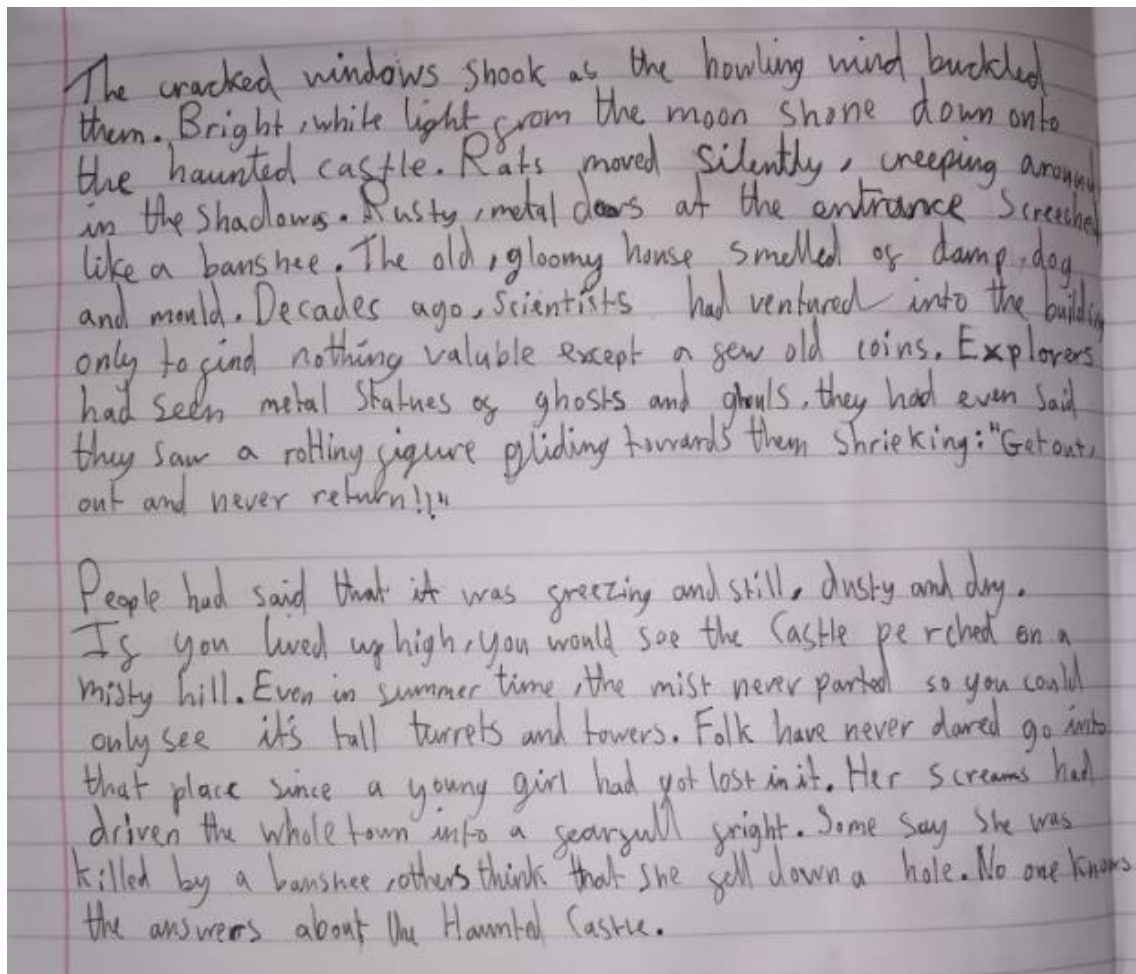 The cracked windows shook as the howling wind buckled
them. Bright, white light from the moon shone down onto
the haunted castle. Rats moved silently, creeping around
in the shadows. Rusty, metal doors at the entrance screeched
like a banshee. The old, gloomy house smelled of damp, dog
and mould. Decades ago, scientists had ventured into the building
only to find nothing valuble except a few old coins. Explorers
had seen metal statues of ghosts and ghouls, they had even said
they saw a rotting figure gliding towards them shrieking: "Get out,
out and never return!!"
People had said that it was freezing and still, dusty and dry.
If you lived up high, you would see the Castle perched on a
misty hill. Even in summer time, the mist never parted so you could
only see it's tall turrets and towers. Folk have never dared go into
that place since a young girl had got lost in it. Her screams had
driven the whole town into a fearfull fright. Some say she was
killed by a banshee, others think that she fell down a hole. No one knows
the answers about the Haunted Castle.